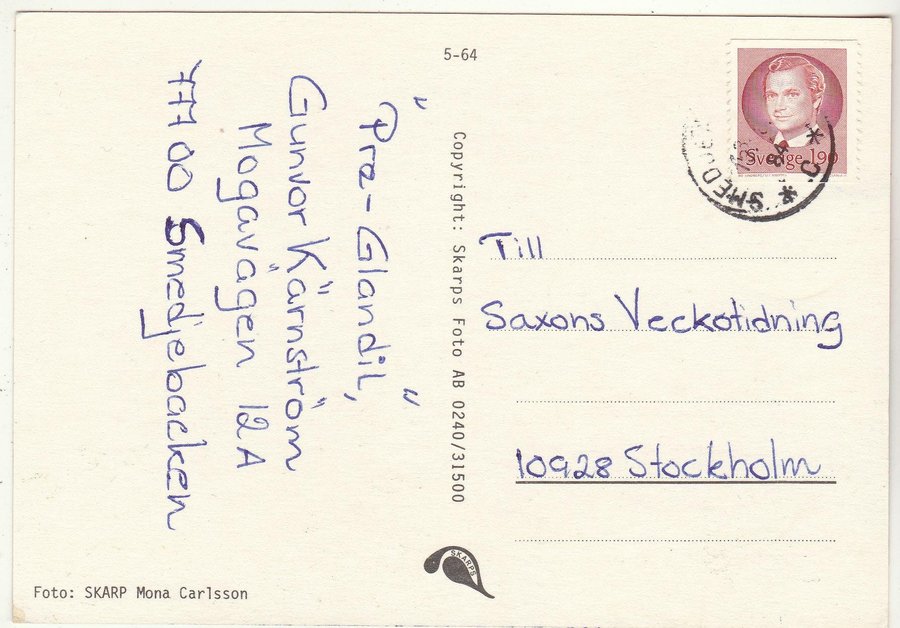 5-64
"Pra-Glandil,"
Gunvor Kärnström
Mogavägen 12A
777 00 Smedjebacken
Copyright: Skarps Foto AB 0240/31500
Sverige 190
Till
Saxons Veckotidning
10928 Stockholm
SKARPS
Foto: SKARP Mona Carlsson